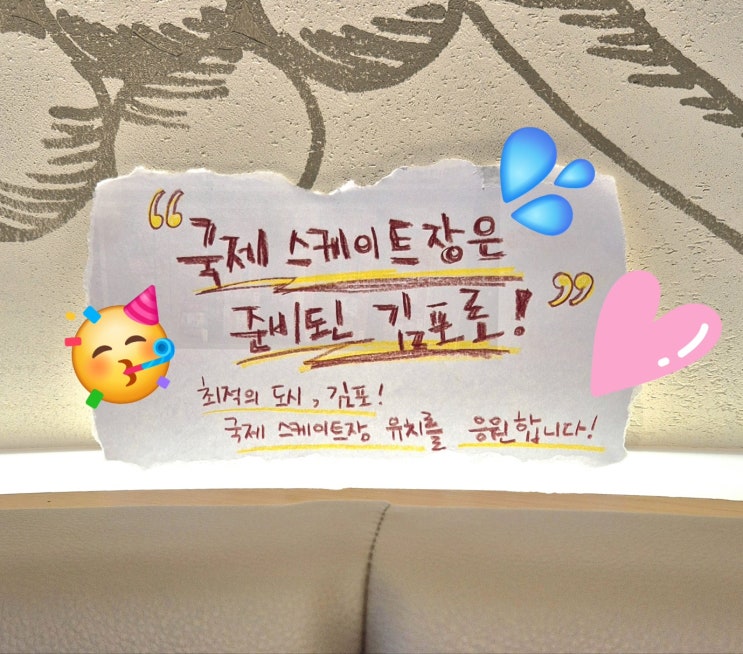 "국제 스케이트장은
준비된 김포로!"
최적의 도시, 김포!
국제 스케이트장 유치를 응원합니다!